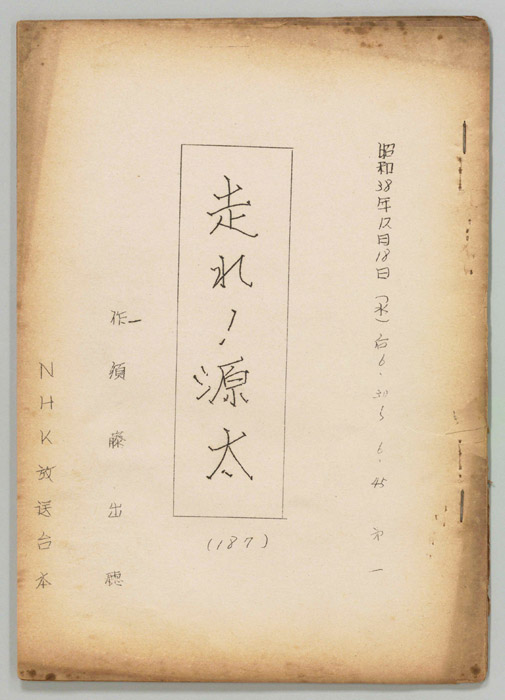 昭和38年12月18日(水)后6.30〜6.45 第一
走れ!源太
(187)
作ー須藤出穂
NHK放送台本